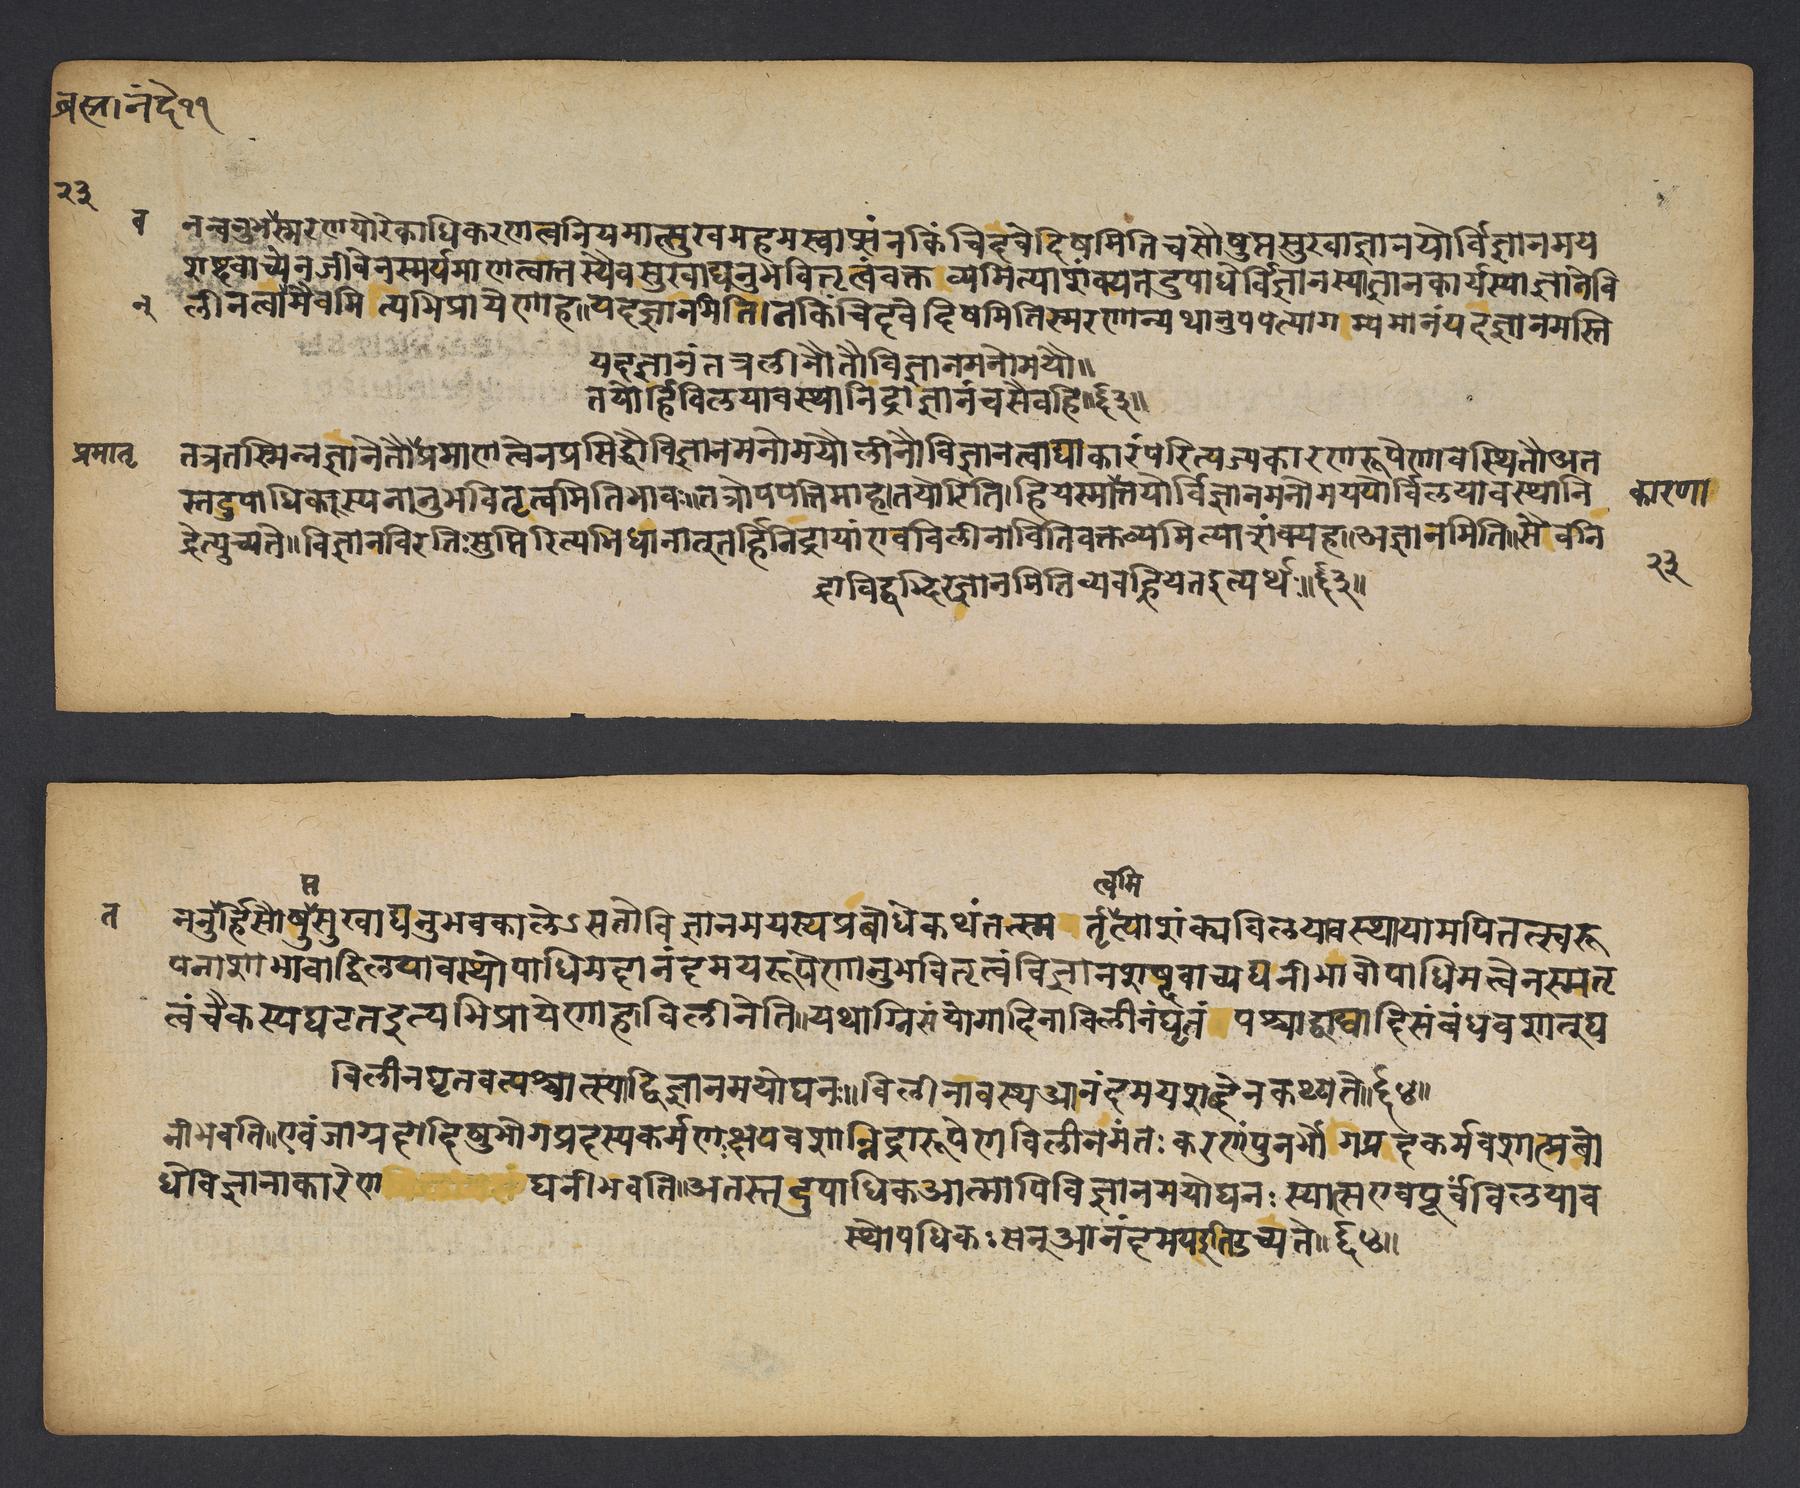 ब्रह्मानंदे ११
२३
व
नन्वनुभस्मरणयोरेकाधिकरणत्वनियमात्सुखमहमस्वाप्सं न किंचिदवेदिषमिति च सौषुप्तसुखाज्ञानयोर्विज्ञानमय
शब्दवाच्येन जीवेन स्मर्यमाणत्वात्तस्यैव सुखाद्यनुभवितृत्वं वक्तव्यमित्याशंक्य तदुपाधेर्विज्ञानस्याज्ञानकार्यस्याज्ञाने वि
न्
लीनत्वामैवमित्यभिप्रायेणाह॥यदज्ञानमिति।न किंचिदवेदिषमिति स्मरणान्यथानुपपत्त्यागम्यमानं यदज्ञानमस्ति
यदज्ञानं तत्र लीनौ तौ विज्ञानमनोमयौ॥
तयोर्हि विलयावस्था निद्राज्ञानं च सैव हि॥६३॥
प्रमातृ
तत्र तस्मिन्नज्ञाने तौ प्रमाणत्वेन प्रसिद्धौ विज्ञानमनोमयौ लीनौ विज्ञानत्वाद्याकारं परित्यज्य कारणरूपेणावस्थितौ अत
स्तदुपाधिकस्य नानुभवितृत्वमिति भावः॥तत्रोपपत्तिमाह।तयोरिति।हि यस्मात्तयोर्विज्ञानमनोमययोर्विलयावस्था नि
कारणा
द्रेत्युच्यते॥विज्ञानविरतिः सुप्तिरित्यभिधानात् तर्हि निद्रायां एव विलीनाविति वक्तव्यमित्याशंक्यह॥अज्ञानमिति॥सैव नि
२३
द्रा विद्वद्भिरज्ञानमिति व्यवह्रियत इत्यर्थः॥६३॥
प्त
र्त्वमि
त
ननुर्हि सौषुसुखाद्यनुभवकालेऽसतो विज्ञानमयस्य प्रबोधे कथं तत्स्मर्तृत्याशंक्य विलयावस्थायामपि तत्स्वरू
पनाशाभावाद्विलयावस्थोपाधिमदानंदमयरूपेणानुभवितृत्वं विज्ञानशब्दवाच्यघनीभावोपाधिमत्वेन स्मतृ
त्वं चैकस्य घटत इत्यभिप्रायेणाह।विलीनेति॥यथाग्निसंयोगादिना विलीनं घृतं पश्चाद्वाय्वादिसंबंधवशात् घ
विलीनघृतवत्पश्चात्स्याद्विज्ञानमयो घनः॥विलीनावस्थ आनंदमयशब्देन कथ्यते॥६४॥
नीभवति॥एवं जाग्रदादिषु भोगप्रदस्य कर्मणः क्षयवशान्निद्रारूपेण विलीनमंतःकरणं पुनर्भोगप्रदकर्मवशात्प्रबो
धे विज्ञानाकारेण घनीभवति॥अतस्तदुपाधिक आत्मापि विज्ञानमयो घनः स्यात्स एव पूर्वं विलयाव
स्थोपधिकः सन् आनंदमय इति उच्यते॥६४॥